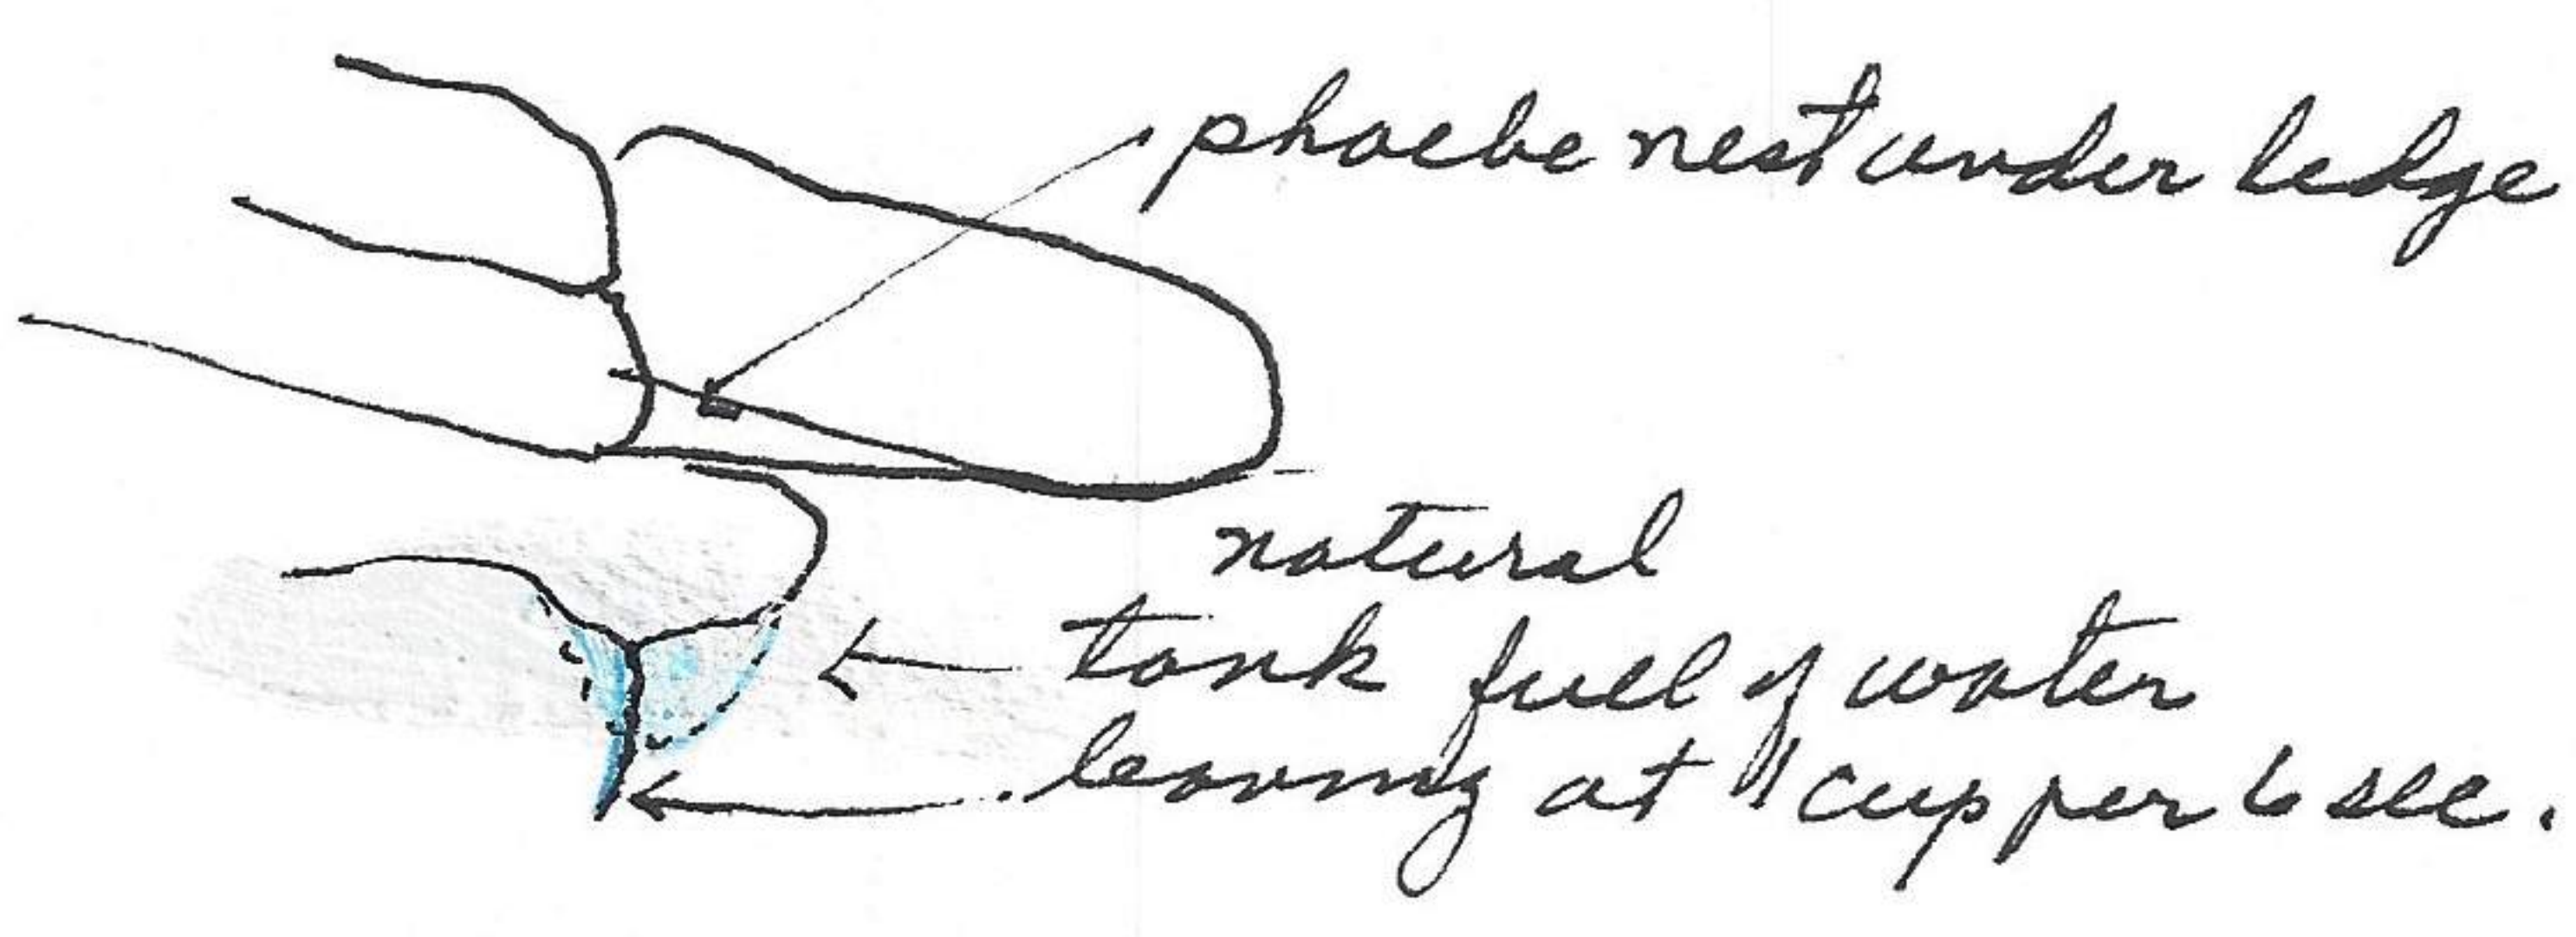 phoebe nest under ledge
natural
tank full of water
leaving at 1 cup per 6 sec.